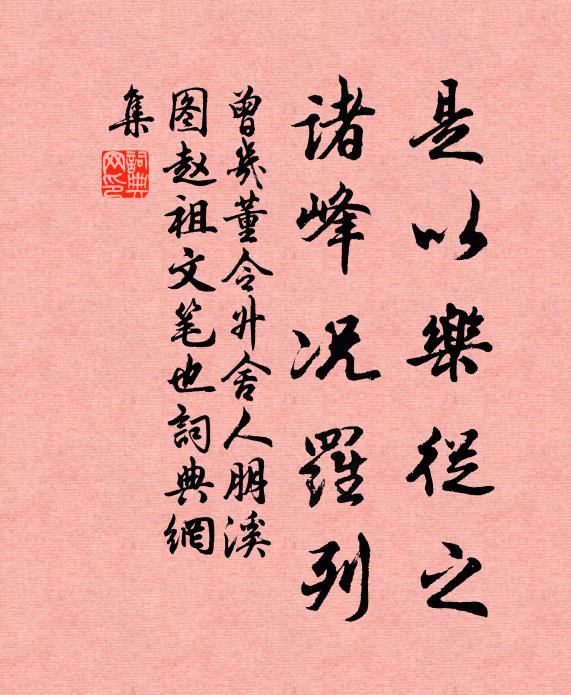 是以樂從之
諸峰况羅列
曾幾董令升舍人朋溪
图赵祖文笔也詞典網
集
詞典網印